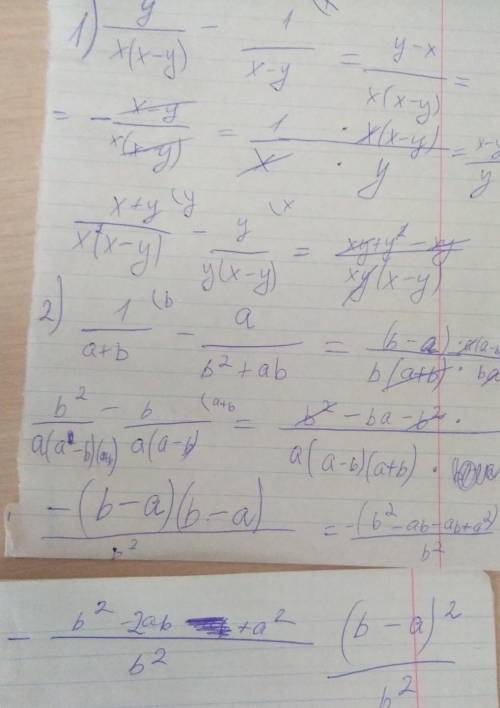 1) y/(x(x-y)) - 1/(x-y) = (y-x)/(x(x-y)) =
= - (x-y)/(x(x-y)) = 1/x · x(x-y)/y = x-y/y
(x+y)/(x(x-y)) (y - y/(y(x-y)) (x = (xy+y² - xy)/(xy(x-y))
2) 1/(a+b) (b - a/(b²+ab) = (b-a)/(b(a+b)) ·
b²/ - b/(a(a-b) (a+b = (b² - ba - b²)/(a(a-b)(a+b)) ·
-(b-a)(b-a)/b² = -(b²-ab-ab+a²)/b²
- (b² -2ab +a²)/b² (b-a)²/b²